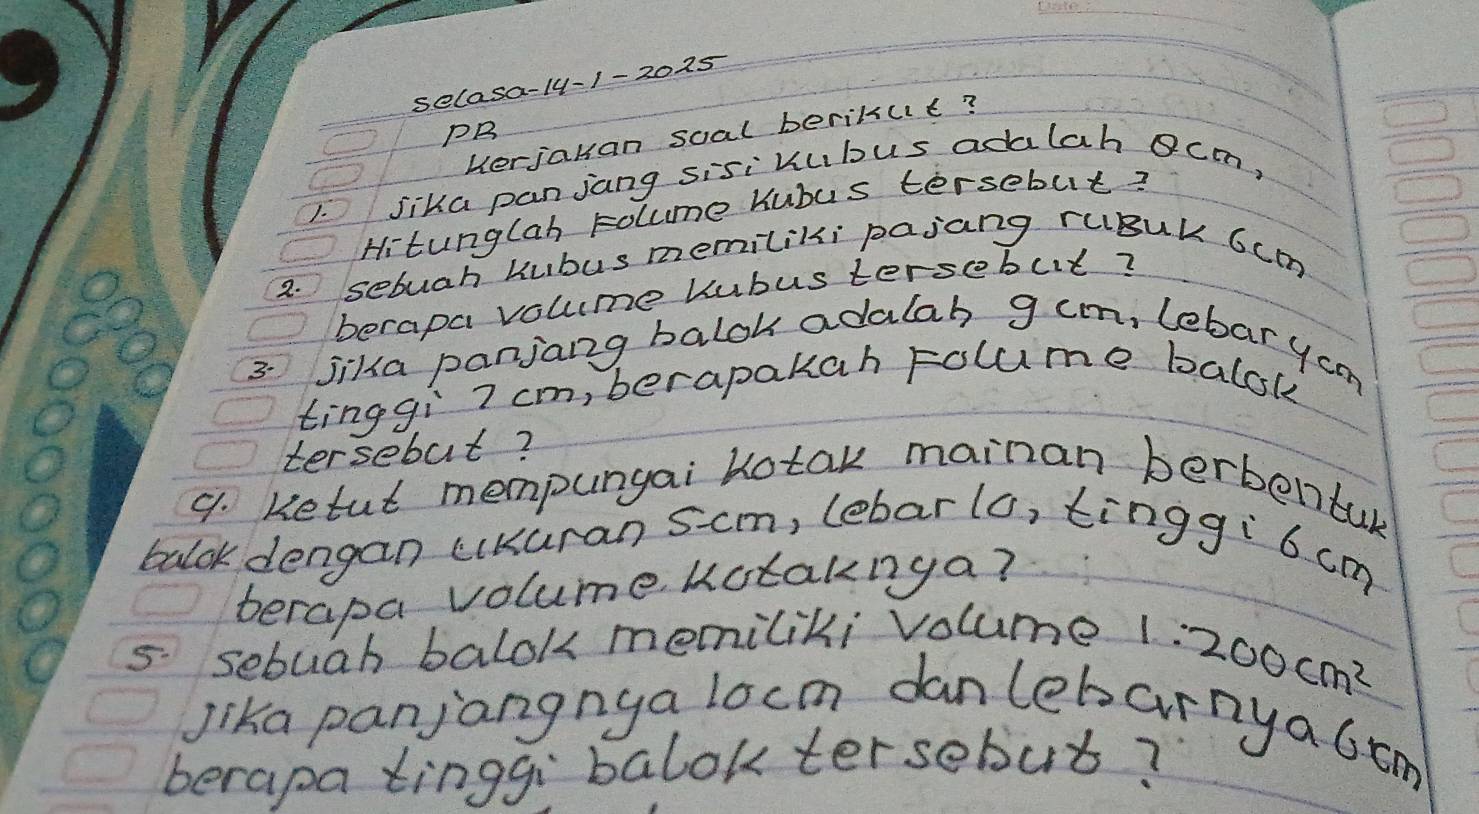 Date:
selasa-14-1-2025
PR
kerjakan soal berikut?
1. jika panjang sisi kubus adalah 8cm,
Hitunglah Folume kubus tersebut?
2. sebuah kubus memiliki pajang rubuk 6cm
berapa volume kubus tersebut?
3. jika panjang balok adalah 9 cm, lebar 4cm
tinggi 7 cm, berapakah Folume balok
tersebut?
4. ketut mempunyai kotak mainan berbentuk
balok dengan ukuran 5cm, lebar 10, tinggi 6 cm
berapa volume kotaknya?
5. sebuah balok memiliki volume 1.200cm²
jika panjangnya 10cm dan lebarnya 6cm
berapa tinggi balok tersebut?